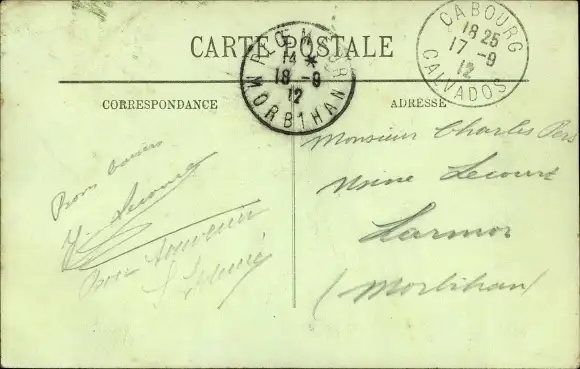 CARTE POSTALE
CABOURG
18 25
17 - 9
12
CALVADOS
PLŒMEUR
14 *
18 - 9
12
MORBIHAN
CORRESPONDANCE
ADRESSE
Bons baisers
Bon souvenir
Monsieur Charles
Usine Lecourt
Larmor
(Morbihan)